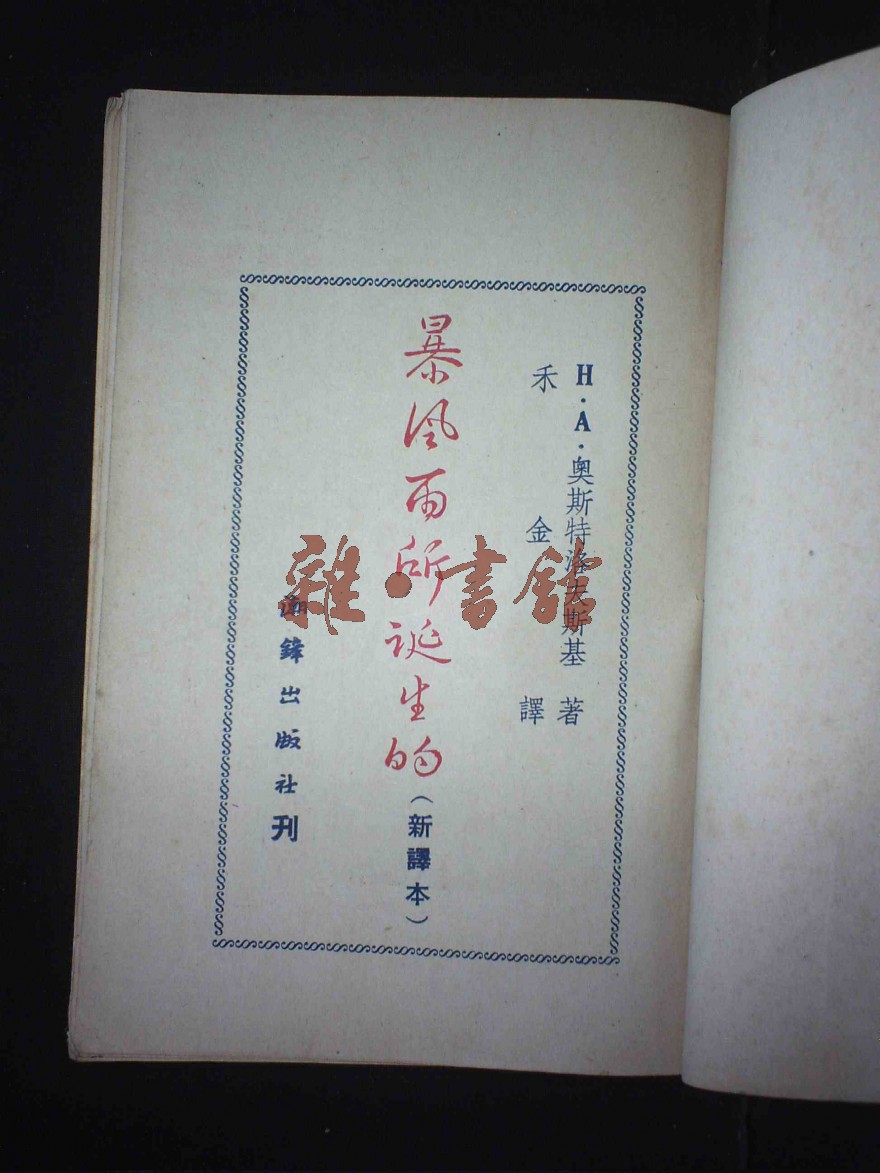 H·A·奧斯特洛夫斯基 著
禾金 譯
暴風雨所誕生的（新譯本）
鋒出版社刊
雜·書館